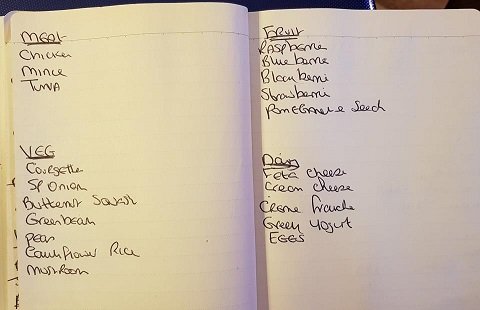 MEAT
Chicken
Mince
TUNA
VEG
Courgette
SP Onion
Butternut Squash
Greenbean
Pear
Cauliflower Rice
Mushroom
FRUIT
RASPberrie
Blueberrie
Blackberrie
Strawberrie
Pomegranate Seeds
Dairy
Feta cheese
Cream cheese
Creme fraiche
Greek Yogurt
EGGS